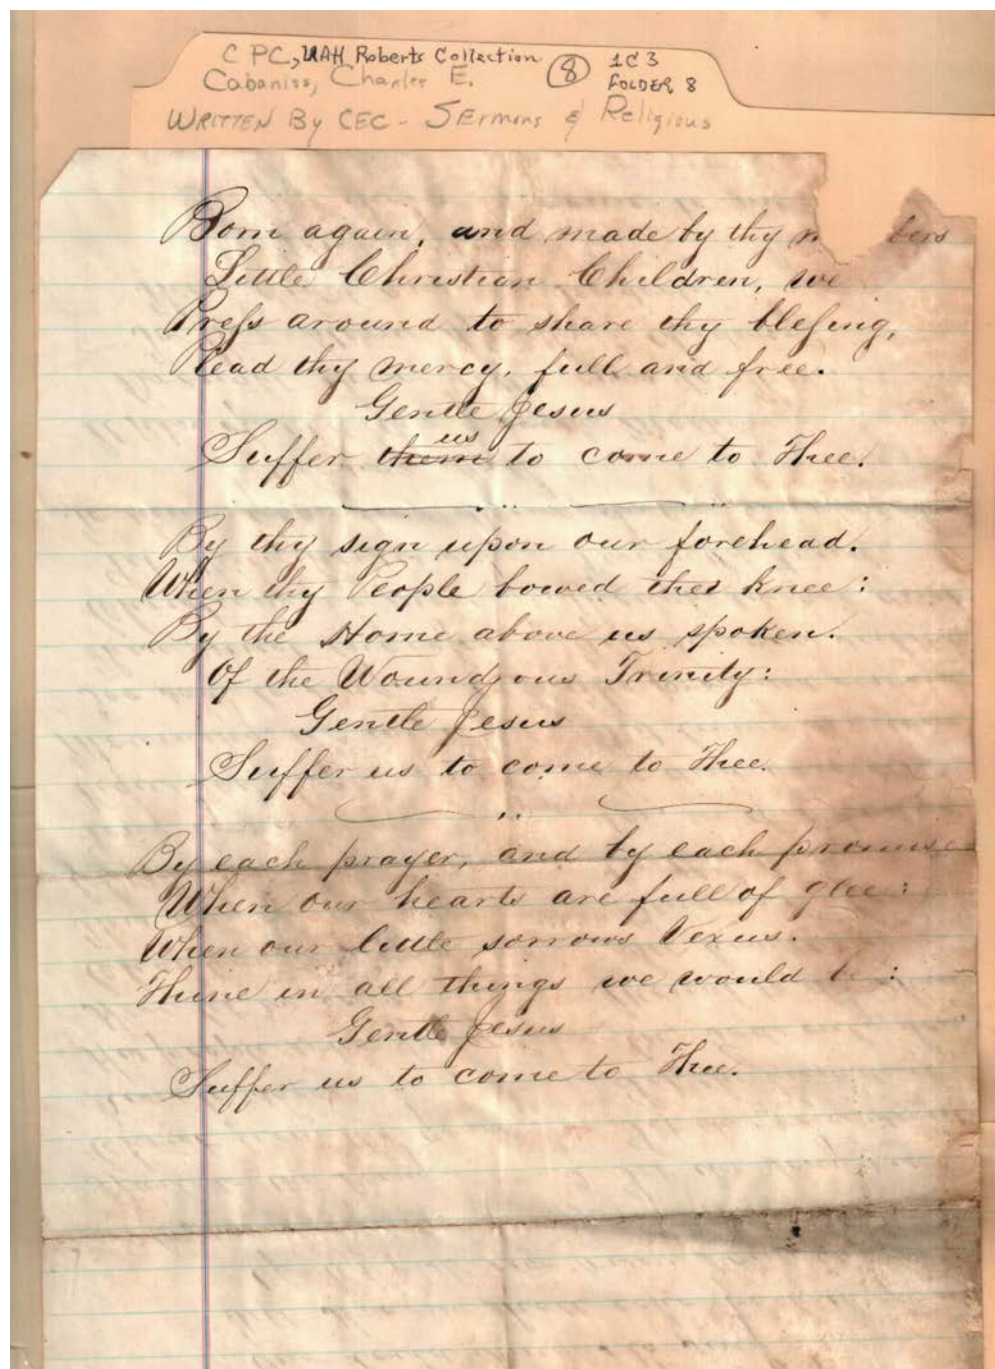 C PC, UAH Roberts Collection 8 1C3
Cabaniss, Charles E. FOLDER 8
WRITTEN By CEC - SErmons & Religious
Born again, and made by thy
Little Christian Children, we
Press around to share thy blessing,
Plead thy mercy, full and free.
Gentle Jesus
us
Suffer them to come to Thee.
By thy sign upon our forehead.
When thy People bowed the knee:
By the Home above us spoken.
Of the Woundrous Trinity:
Gentle Jesus
Suffer us to come to Thee.
By each prayer, and by each promise
When our hearts are full of glee:
When our little sorrows vex us.
Thine in all things we would be:
Gentle Jesus
Suffer us to come to Thee.